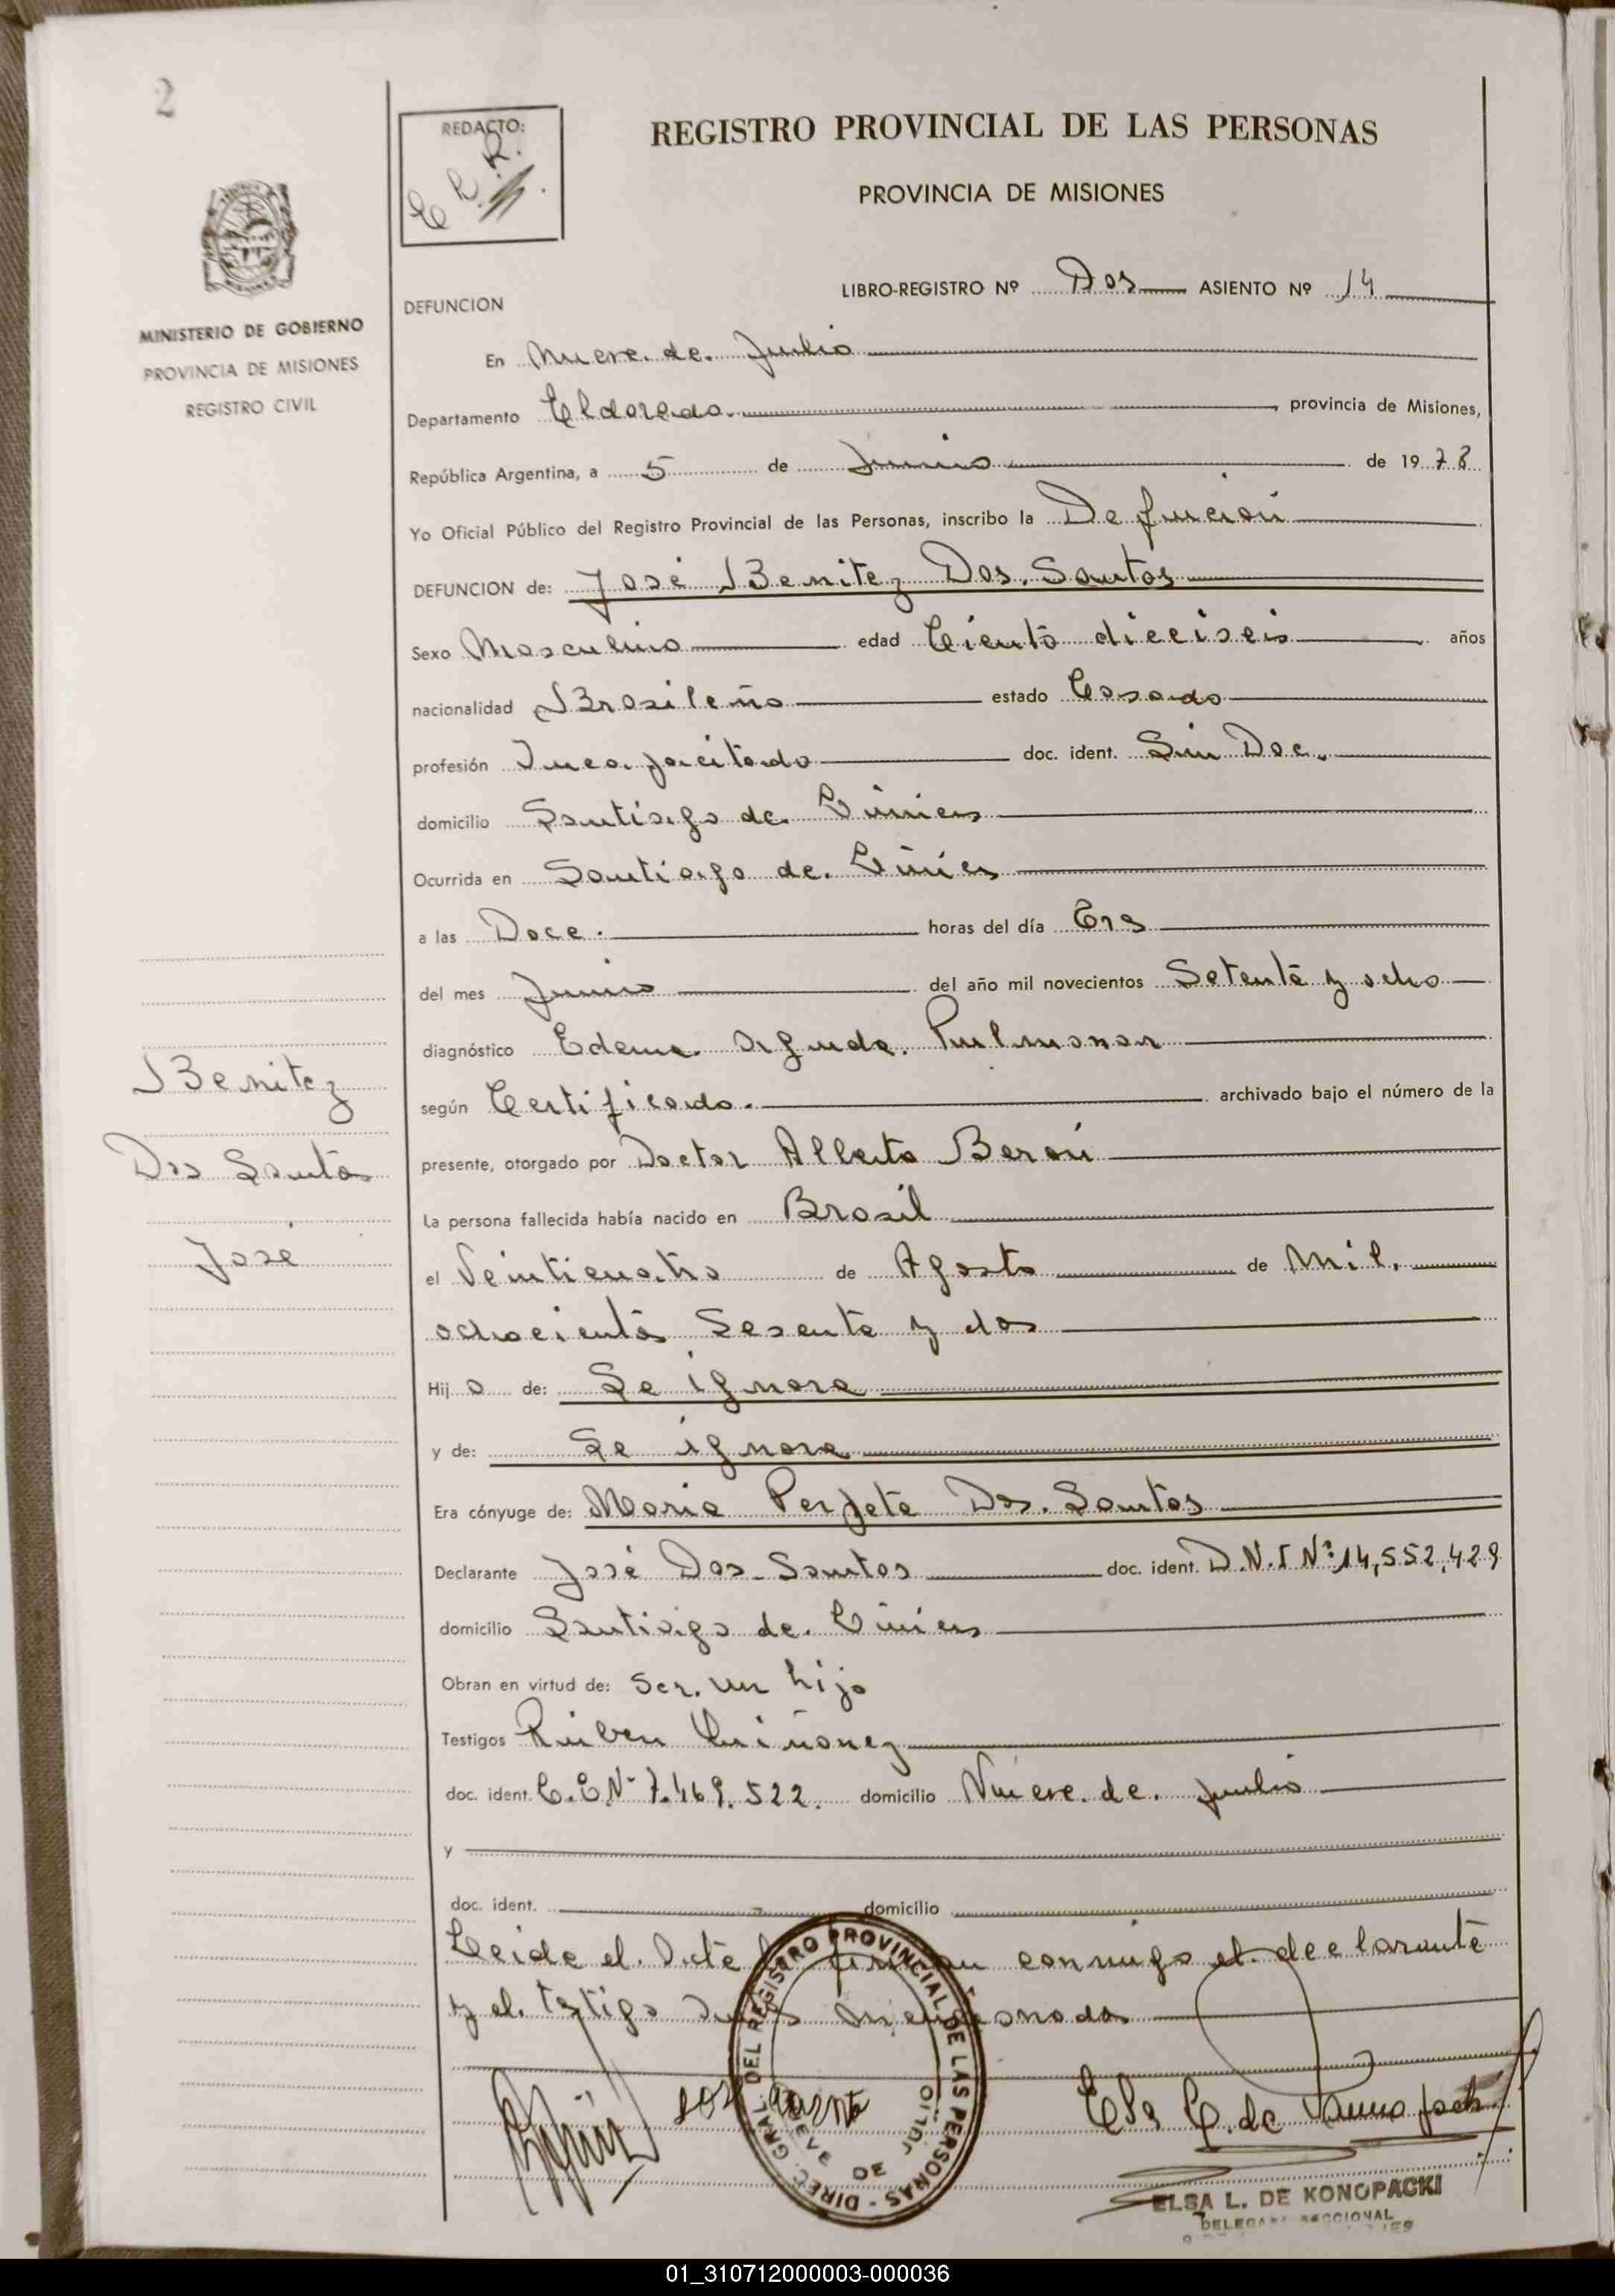 2
REDACTO:
REGISTRO PROVINCIAL DE LAS PERSONAS
PROVINCIA DE MISIONES
MINISTERIO DE GOBIERNO
PROVINCIA DE MISIONES
REGISTRO CIVIL
LIBRO-REGISTRO Nº Dos ASIENTO Nº 14
DEFUNCION
En Nueve de Julio
Departamento Eldorado provincia de Misiones,
República Argentina, a 5 de Junio de 1978
Yo Oficial Público del Registro Provincial de las Personas, inscribo la Defunción
DEFUNCION de: José Benitez Dos Santos
Sexo Masculino edad Ciento dieciseis años
nacionalidad Brasileño estado Casado
profesión Incapacitado doc. ident. Sin Doc.
domicilio Santiago de Liniers
Ocurrida en Santiago de Liniers
a las Doce horas del día Tres
del mes Junio del año mil novecientos Setenta y ocho
diagnóstico Edema Aguda Pulmonar
según Certificado archivado bajo el número de la
presente, otorgado por Doctor Alberto Berón
La persona fallecida había nacido en Brasil
el Veinticuatro de Agosto de Mil
ochocientos Sesenta y dos
Hij o de: Se ignora
y de: Se ignora
Era cónyuge de: Maria Perpeta Dos Santos
Declarante José Dos Santos doc. ident. D.N.I Nº 14,552,429
domicilio Santiago de Liniers
Obran en virtud de: Ser un hijo
Testigos Ruben Quiñonez
doc. ident. Nº 7.469.522. domicilio Nueve de Julio
y
doc. ident. domicilio
Leida el Acta la firman conmigo el declarante
y el testigo mencionado
Benitez
Dos Santos
José
DIREC. GRAL. DEL REGISTRO PROVINCIAL DE LAS PERSONAS
NUEVE DE JULIO
Elsa L. de Konopacki
ELSA L. DE KONOPACKI
01_310712000003-000036